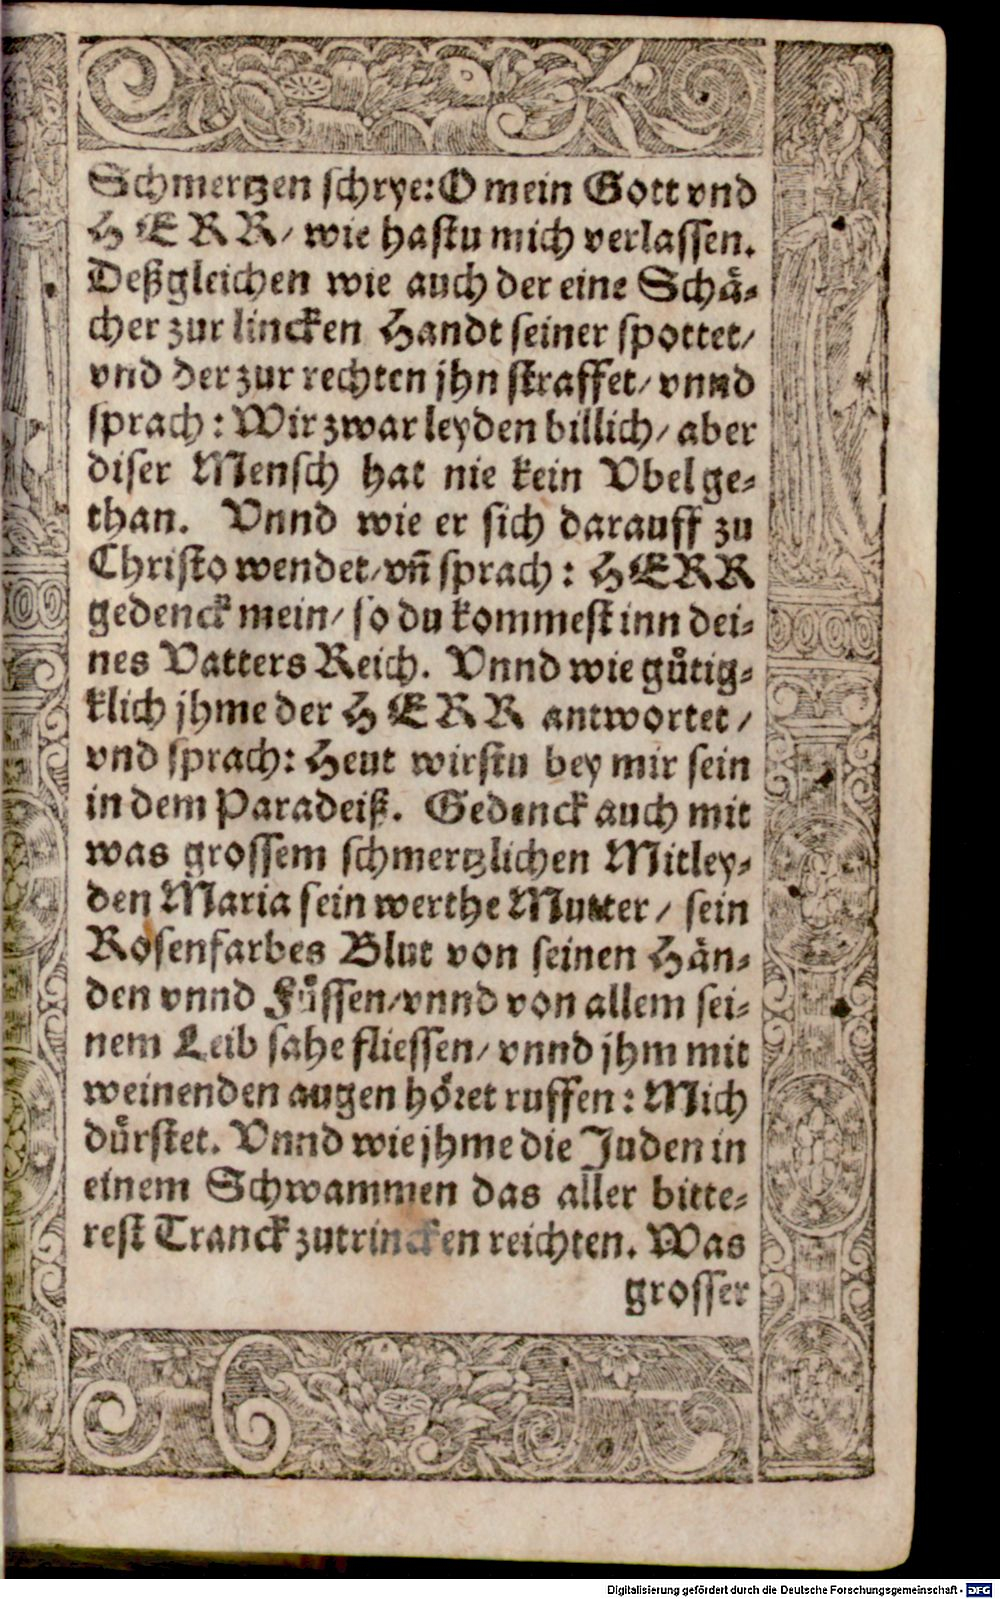 Schmertzen schrye: O mein Gott vnd
HERR/ wie hastu mich verlassen.
Deßgleichen wie auch der eine Schaͤ-
cher zur lincken Handt seiner spottet/
vnd der zur rechten jhn straffet/ vnnd
sprach: Wir zwar leyden billich/ aber
diser Mensch hat nie kein Vbel ge-
than. Vnnd wie er sich darauff zu
Christo wendet/ vn̄ sprach: HERR
gedenck mein/ so du kommest inn dei-
nes Vatters Reich. Vnnd wie guͤtig-
klich jhme der HERR antwortet/
vnd sprach: Heut wirstu bey mir sein
in dem Paradeiß. Gedenck auch mit
was grossem schmertzlichen Mitley-
den Maria sein werthe Mutter/ sein
Rosenfarbes Blut von seinen Haͤn-
den vnnd Fuͤssen/ vnnd von allem sei-
nem Leib sahe fliessen/ vnnd jhm mit
weinenden augen hoͤret ruffen: Mich
duͤrstet. Vnnd wie jhme die Juden in
einem Schwammen das aller bitte-
rest Tranck zutrincken reichten. Was
grosser
Digitalisierung gefördert durch die Deutsche Forschungsgemeinschaft - DFG